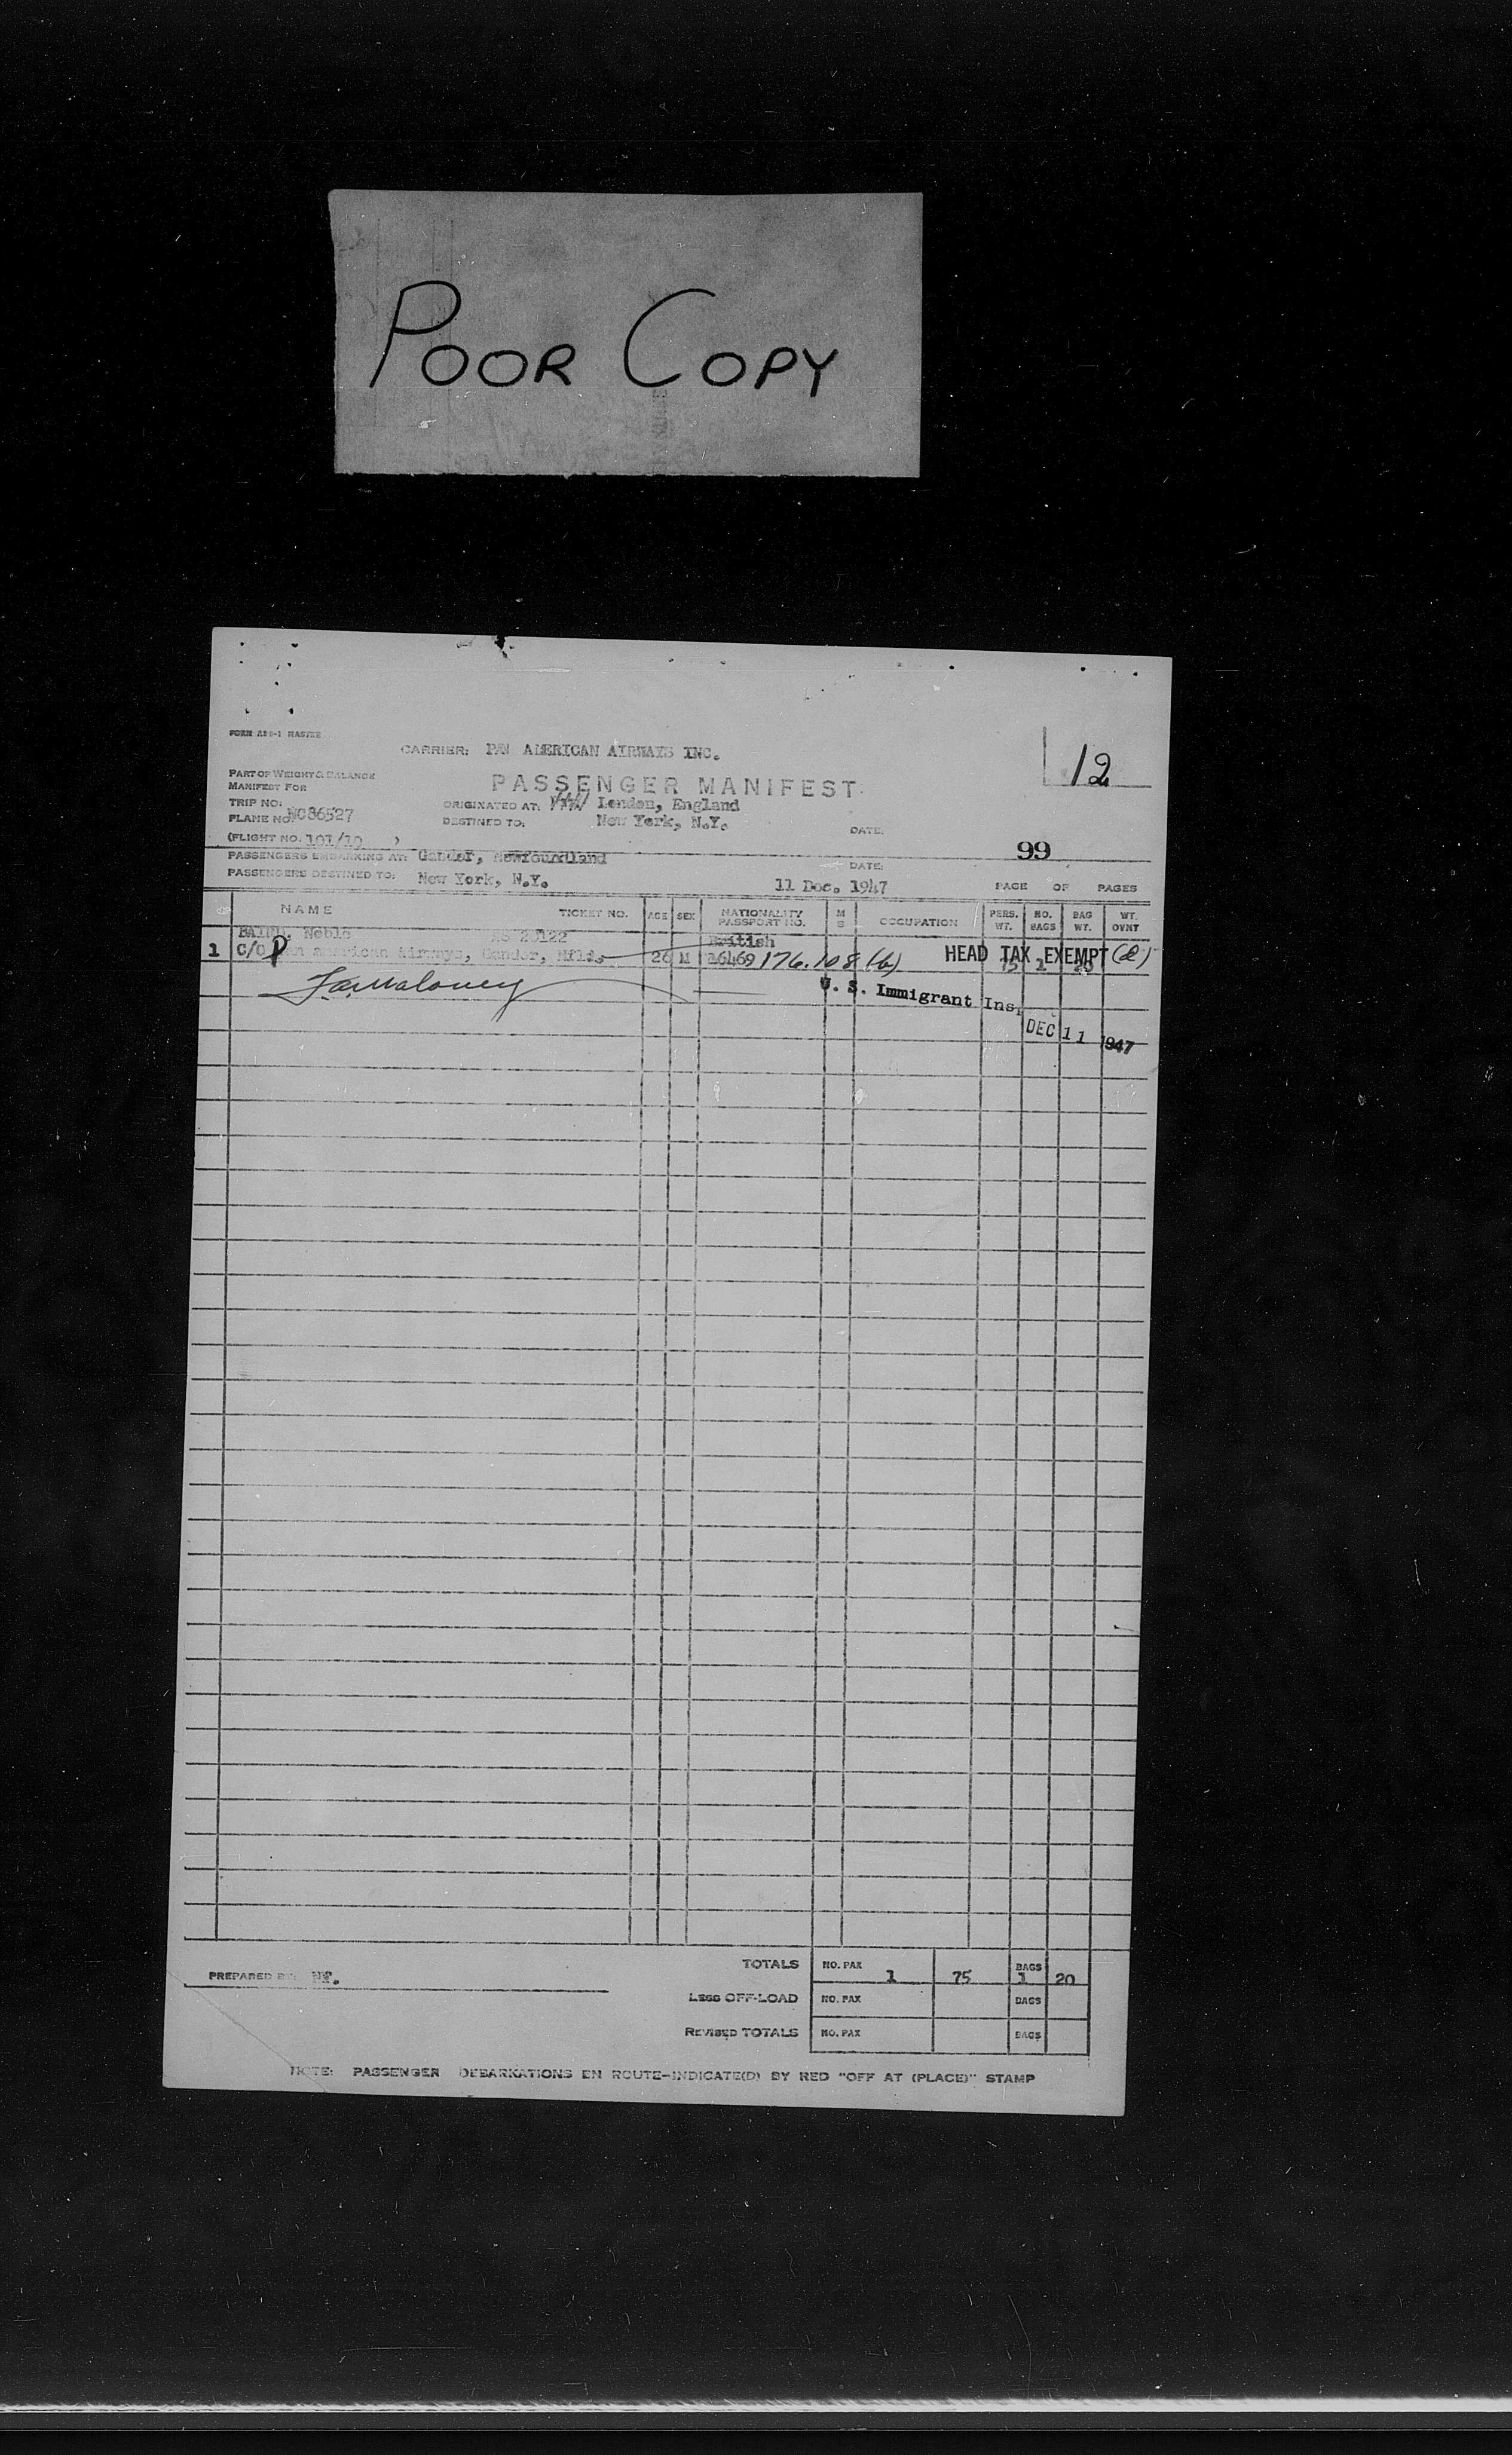 POOR COPY
FORM
MASTER
CARRIER: PAN AMERICAN AIRWAYS INC.
12
PART OF WEIGHT & BALANCE
MANIFEST FOR
PASSENGER MANIFEST
TRIP NO:
ORIGINATED AT: London, England
PLANE NO. NC86527
DESTINED TO: New York, N.Y.
DATE:
(FLIGHT NO. 101/10 )
99
PASSENGERS EMBARKING AT: Gander, Newfoundland
DATE:
PASSENGERS DESTINED TO: New York, N.Y.
11 Dec. 1947
PAGE OF PAGES
NAME TICKET NO. AGE SEX NATIONALITY PASSPORT NO. M S OCCUPATION PERS. WT. NO. BAGS BAG WT. WT. OVNT
BAIRD, British
1 C/O Pan American Airways, Gander, Nfld. 26 M 26469 176.108 (b) HEAD TAX EXEMPT
75 1 20
U. S. Immigrant Ins.
DEC 11 1947
PREPARED BY:
TOTALS NO. PAX 1 75 BAGS 1 20
LESS OFF-LOAD NO. PAX BAGS
REVISED TOTALS NO. PAX BAGS
NOTE: PASSENGER DEBARKATIONS EN ROUTE-INDICATE(D) BY RED "OFF AT (PLACE)" STAMP